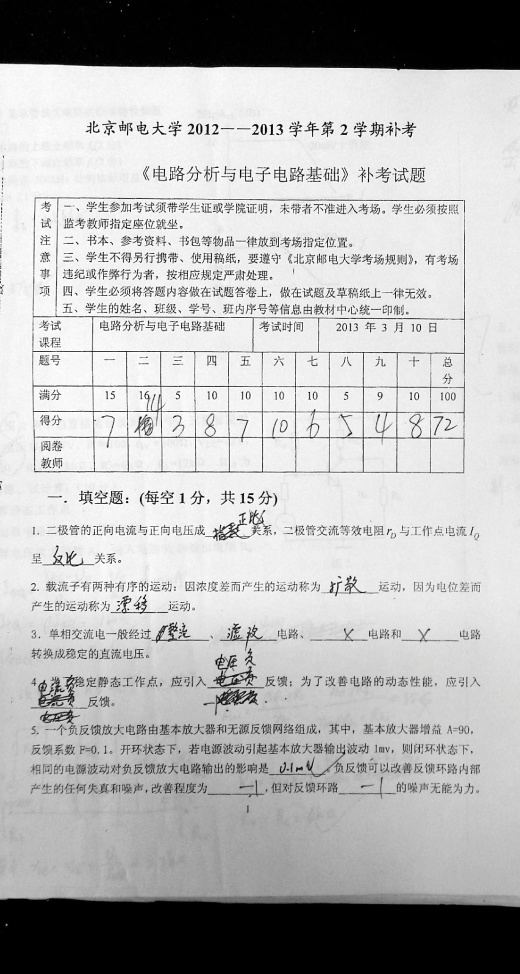 北京邮电大学 2012——2013 学年第 2 学期补考
《电路分析与电子电路基础》补考试题
考试注意事项
一、学生参加考试须带学生证或学院证明，未带者不准进入考场。学生必须按照
监考教师指定座位就坐。
二、书本、参考资料、书包等物品一律放到考场指定位置。
三、学生不得另行携带、使用稿纸，要遵守《北京邮电大学考场规则》，有考场
违纪或作弊行为者，按相应规定严肃处理。
四、学生必须将答题内容做在试题答卷上，做在试题及草稿纸上一律无效。
五、学生的姓名、班级、学号、班内序号等信息由教材中心统一印制。
考试课程 电路分析与电子电路基础 考试时间 2013 年 3 月 10 日
题号 一 二 三 四 五 六 七 八 九 十 总分
满分 15 16 5 10 10 10 10 5 9 10 100
得分 7 14 3 8 7 10 6 5 4 8 72
阅卷教师
一．填空题：(每空 1 分，共 15 分)
正比
1. 二极管的正向电流与正向电压成 指数 关系，二极管交流等效电阻 r_D 与工作点电流 I_Q
呈 反比 关系。
2. 载流子有两种有序的运动：因浓度差而产生的运动称为 扩散 运动，因为电位差而
产生的运动称为 漂移 运动。
3. 单相交流电一般经过 整流 、 滤波 电路、 X 电路和 X 电路
转换成稳定的直流电压。
电压负
4. 为了稳定静态工作点，应引入 反馈；为了改善电路的动态性能，应引入
反馈。
5. 一个负反馈放大电路由基本放大器和无源反馈网络组成，其中，基本放大器增益 A=90，
反馈系数 F=0.1。开环状态下，若电源波动引起基本放大器输出波动 1mv，则闭环状态下，
相同的电源波动对负反馈放大电路输出的影响是 0.1mV 。负反馈可以改善反馈环路内部
产生的任何失真和噪声，改善程度为 ，但对反馈环路 的噪声无能为力。
1